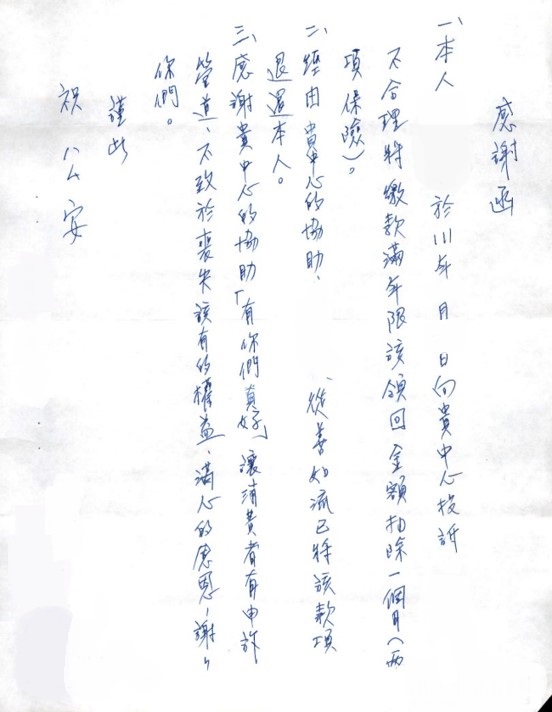 感謝函
一、本人 於111年 月 日向貴中心投訴
不合理將繳款滿年限該領回金額扣除一個月(兩
項保險)。
二、經由貴中心的協助、 從善如流已將該款項
退還本人。
三、感謝貴中心的協助「有你們真好」讓消費者有申訴
管道、不致於喪失該有的權益、滿心的感恩!謝謝
你們。
謹此
祝 公安